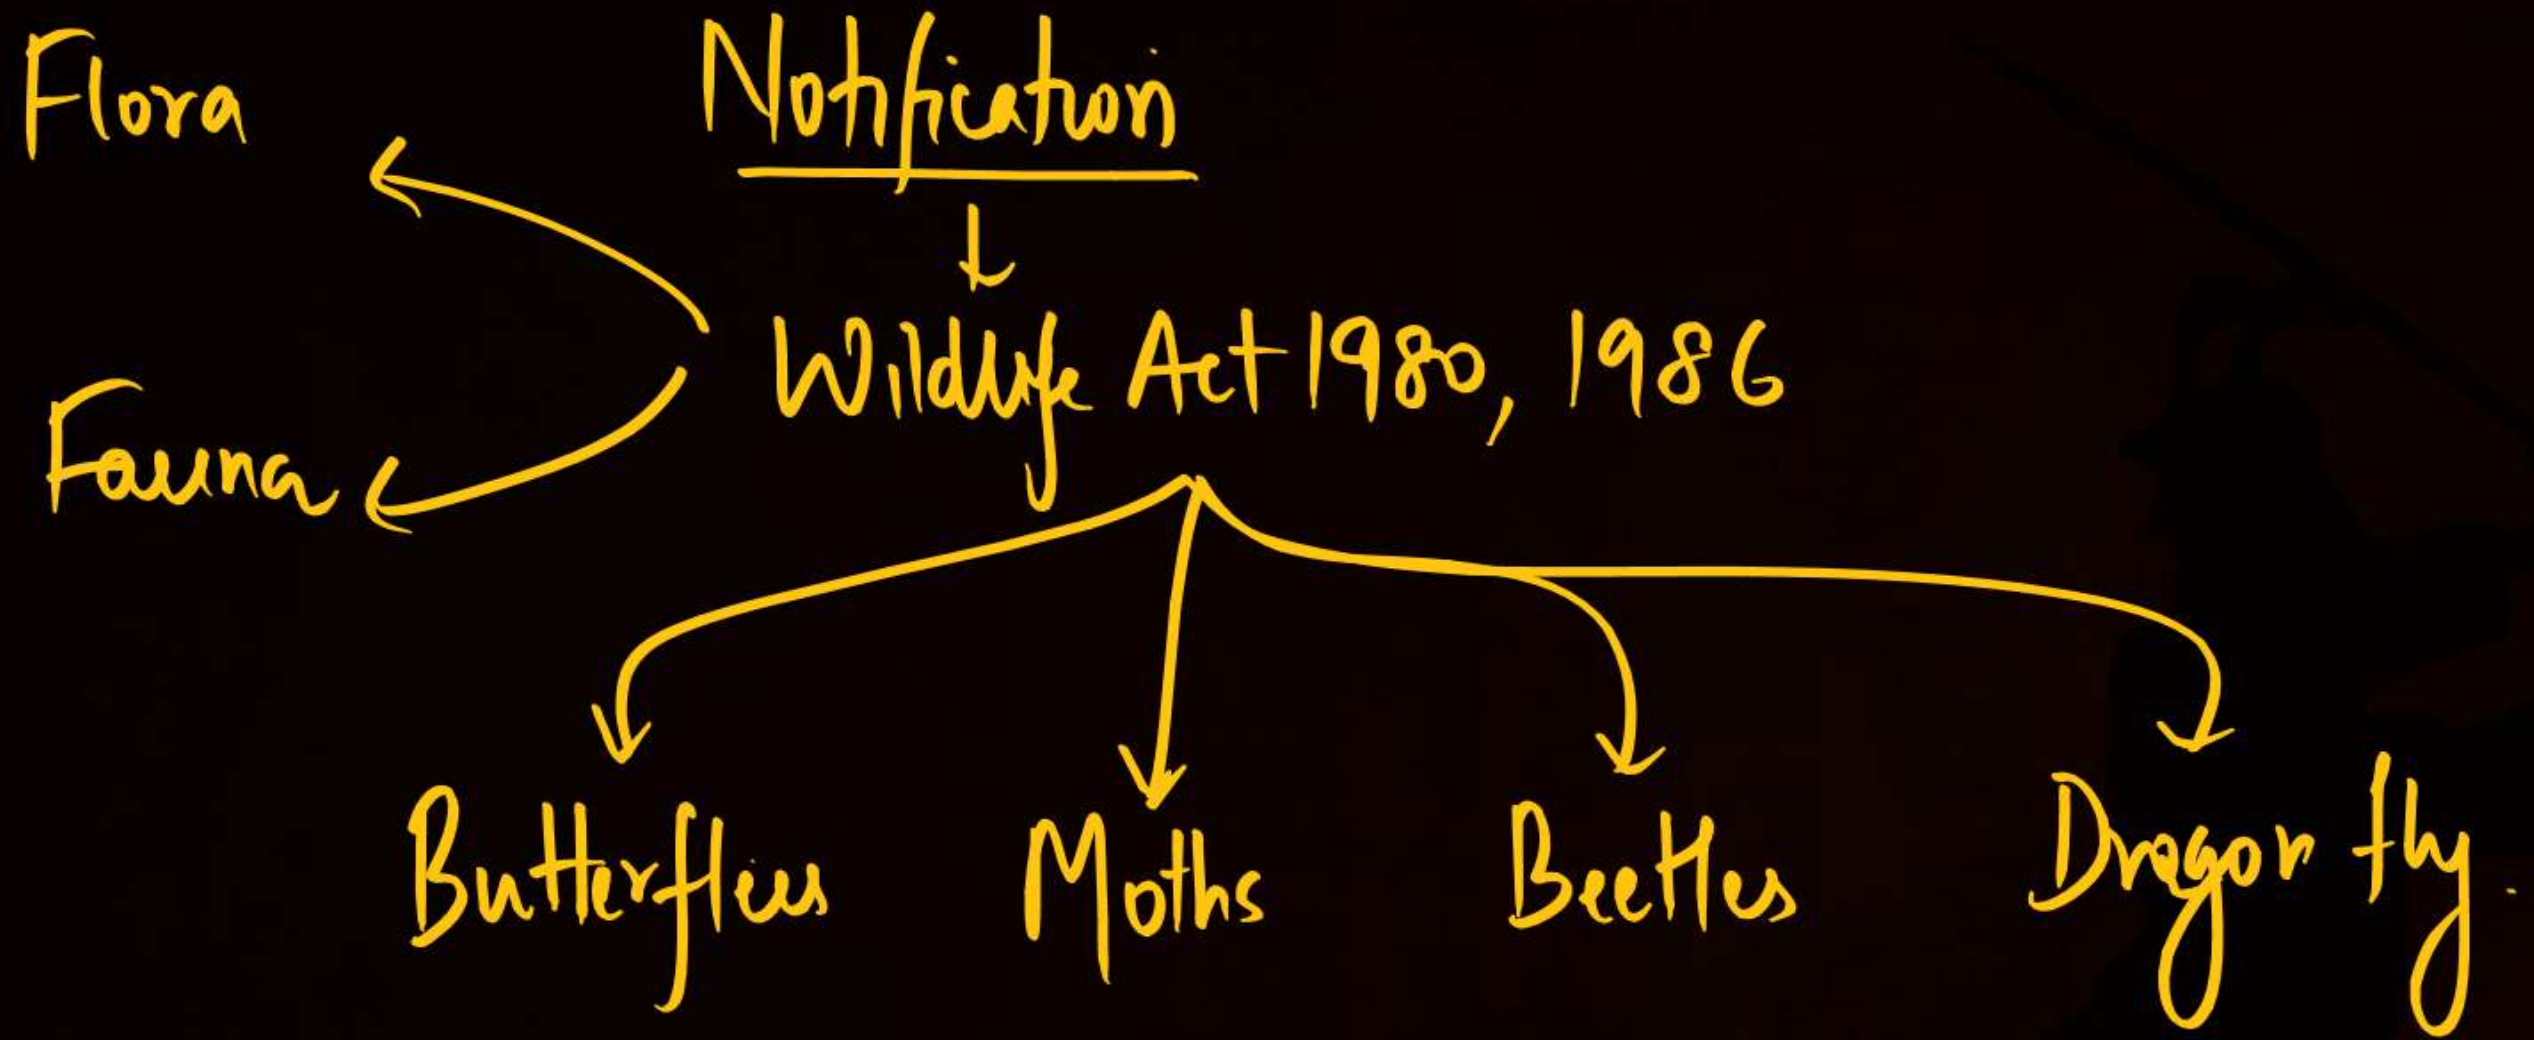 Flora
Notification
Wildlife Act 1980, 1986
Fauna
Butterflies Moths Beetles Dragon fly.